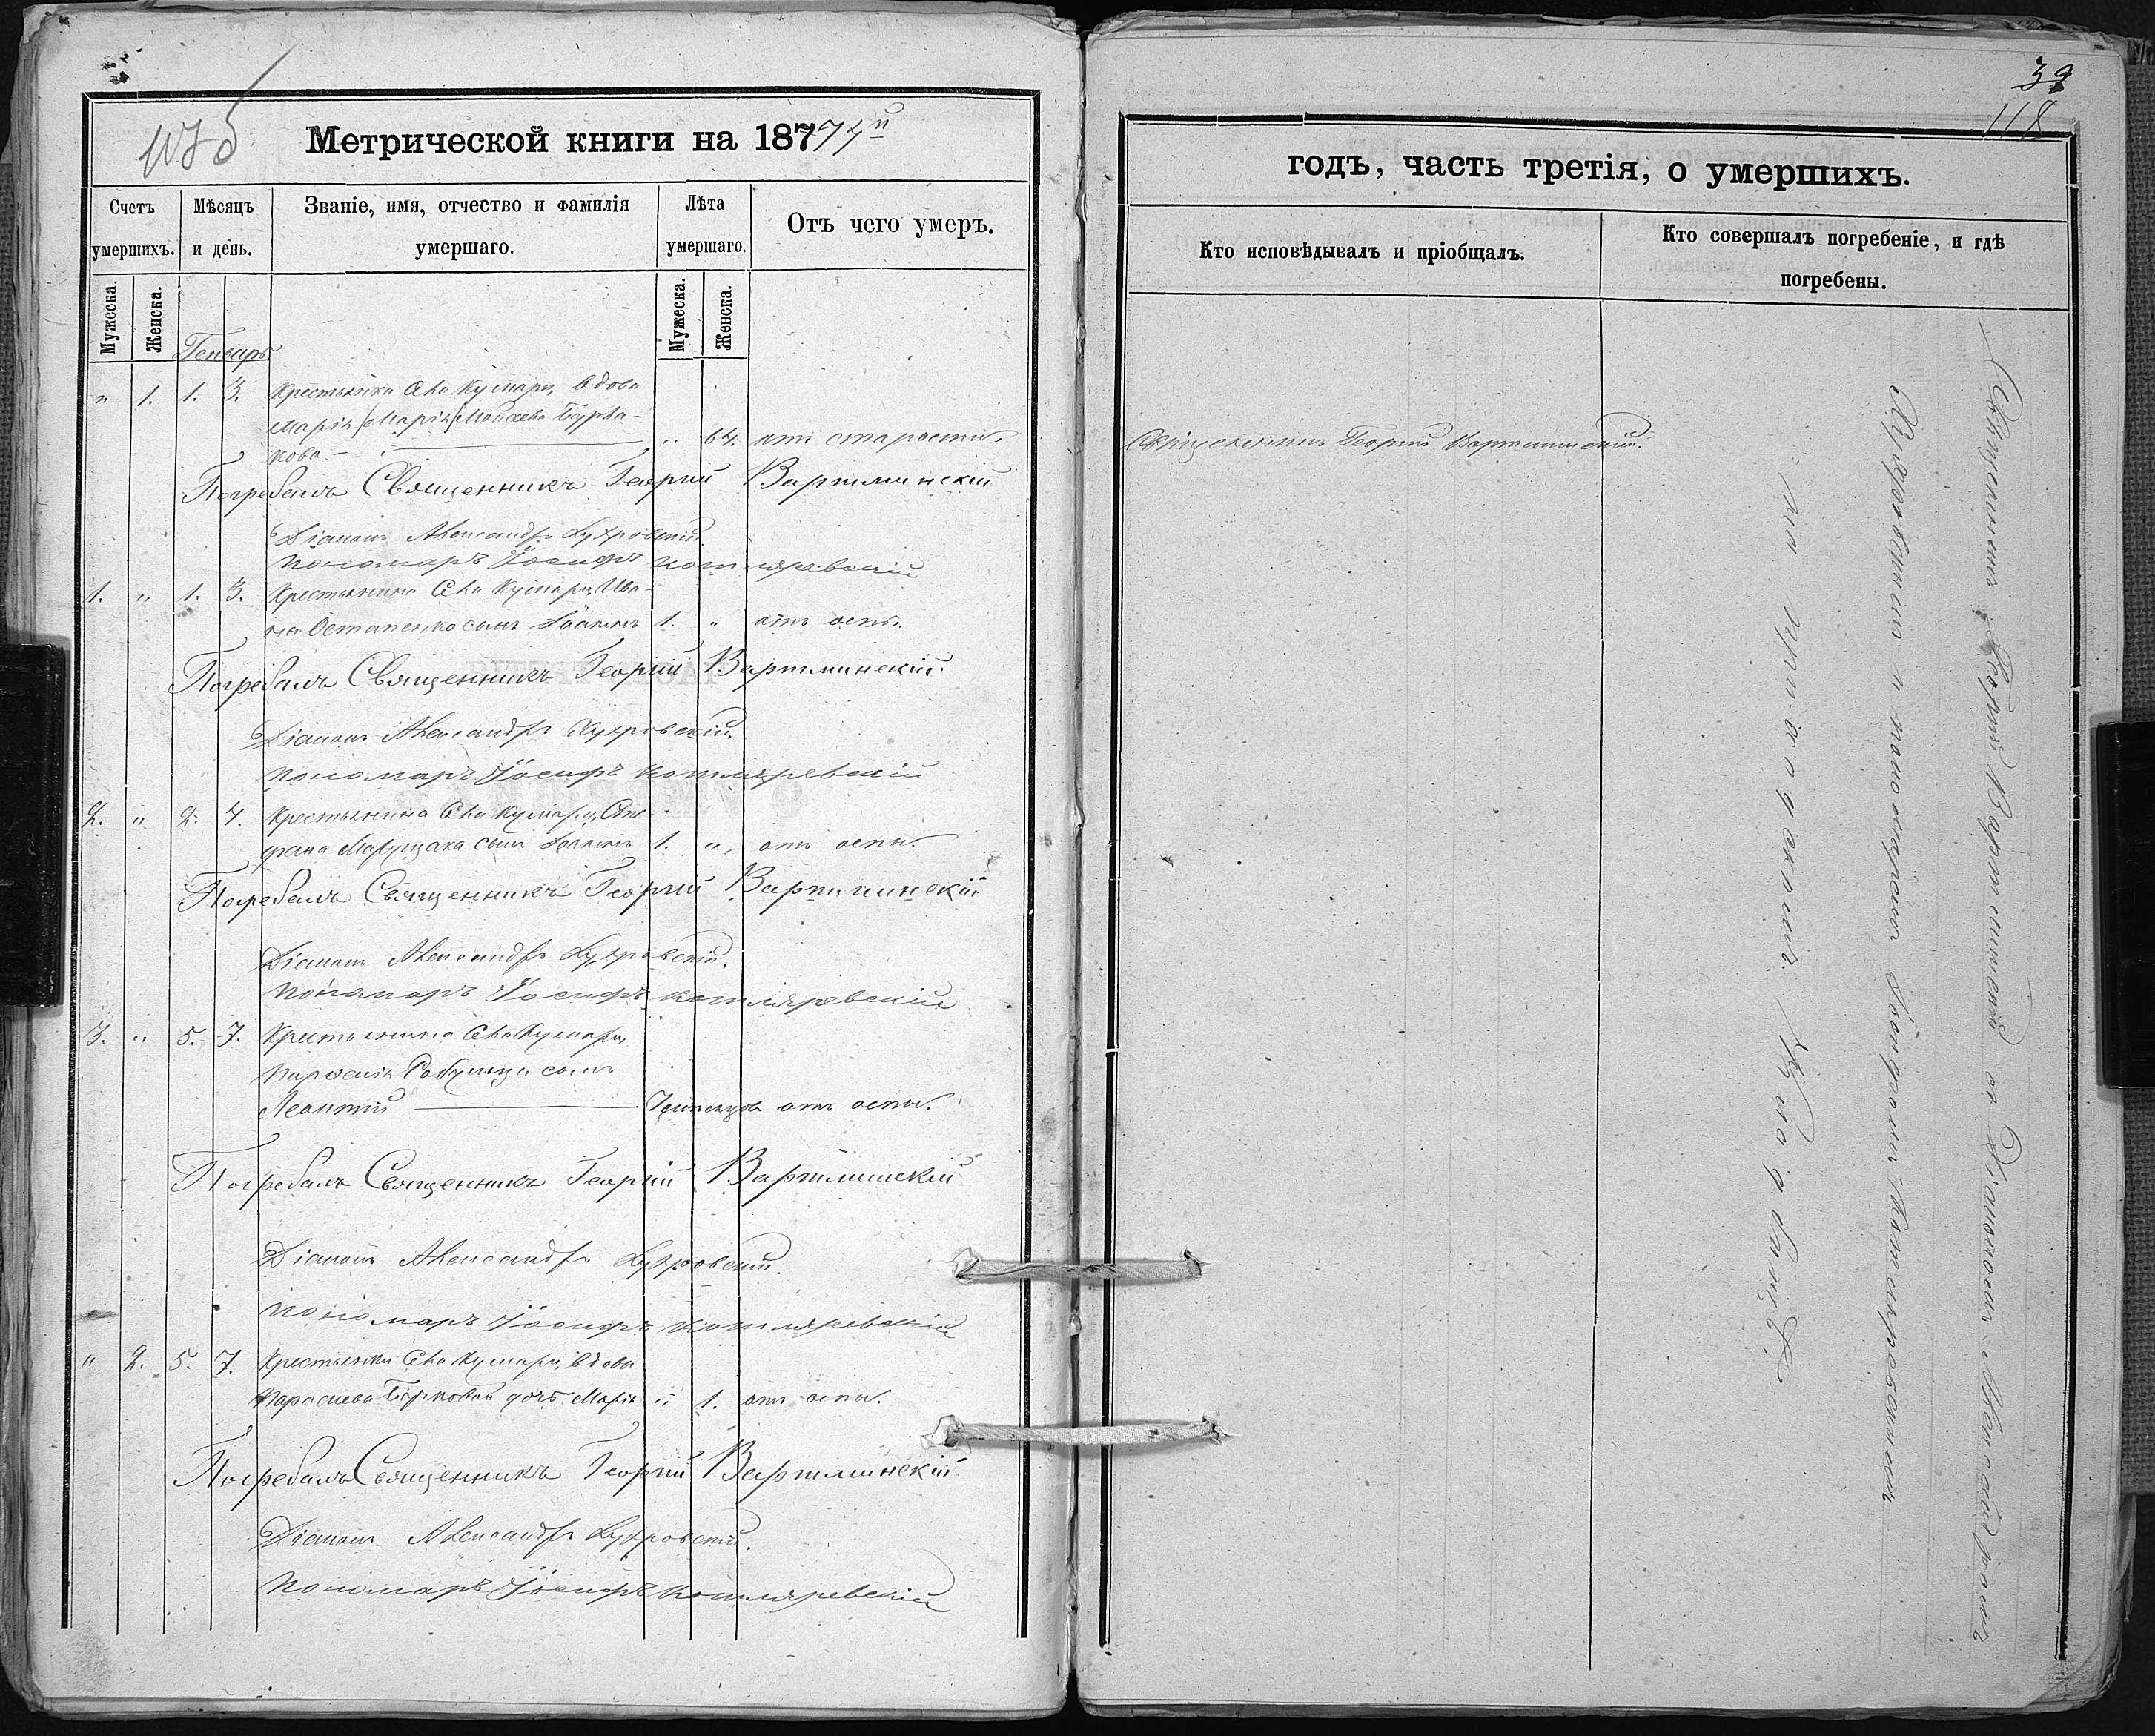 Метрической книги на 187
Счетъ умершихъ.
Мѣсяцъ и день.
Званіе, имя, отчество и фамилія умершаго.
Лѣта умершаго.
Отъ чего умеръ.
Мужеска.
Женска.
Мужеска.
Женска.
Генварь
" 1. 1. 3. Крестьянка Села Кумары, вдова
Марія
кова — " 64. отъ старости.
Погребалъ Священникъ Георгій Вартминскій
Діаконъ Александръ
Пономарь Іосифъ Котляревскій
1. " 1. 3. Крестьянина Села Кумары, Ива-
на Остапенко сынъ Іоаннъ 1. " отъ оспы.
Погребалъ Священникъ Георгій Вартминскій.
Діаконъ Александръ
Пономарь Іосифъ Котляревскій
2. " 2. 4. Крестьянина Села Кумары, Сте-
фана Марущака сынъ Іоаннъ 1. " отъ оспы.
Погребалъ Священникъ Георгій Вартминскій
Діаконъ Александръ
Пономарь Іосифъ Котляревскій
3. " 5. 7. Крестьянина Села Кумары,
Парѳенія сынъ
Леонтій — отъ оспы.
Погребалъ Священникъ Георгій Вартминскій
Діаконъ Александръ
Пономарь Іосифъ Котляревскій
" 2. 5. 7. Крестьянки Села Кумары, вдовы
дочь Марія " 1. отъ оспы.
Погребалъ Священникъ Георгій Вартминскій
Діаконъ Александръ
Пономарь Іосифъ Котляревскій
39
118
годъ, часть третія, о умершихъ.
Кто исповѣдывалъ и пріобщалъ.
Кто совершалъ погребеніе, и гдѣ погребены.
Священникъ Георгій Вартминскій.
Священникъ Георгій Вартминскій съ Діакономъ Александромъ
и пономаремъ Іосифомъ Котляревскимъ
на приходскомъ кладбищѣ